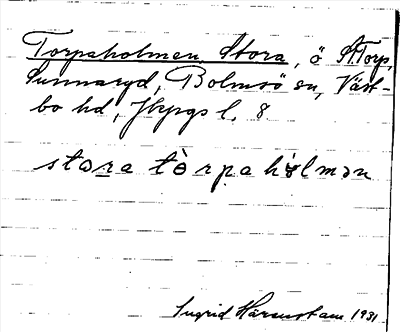 Torpaholmen, Stora, ö St. Torp,
Sunnaryd, Bolmsö sn, Väst-
bo hd, Jkpgs l. 8
stora tòrpahólmən
Ingrid 1931